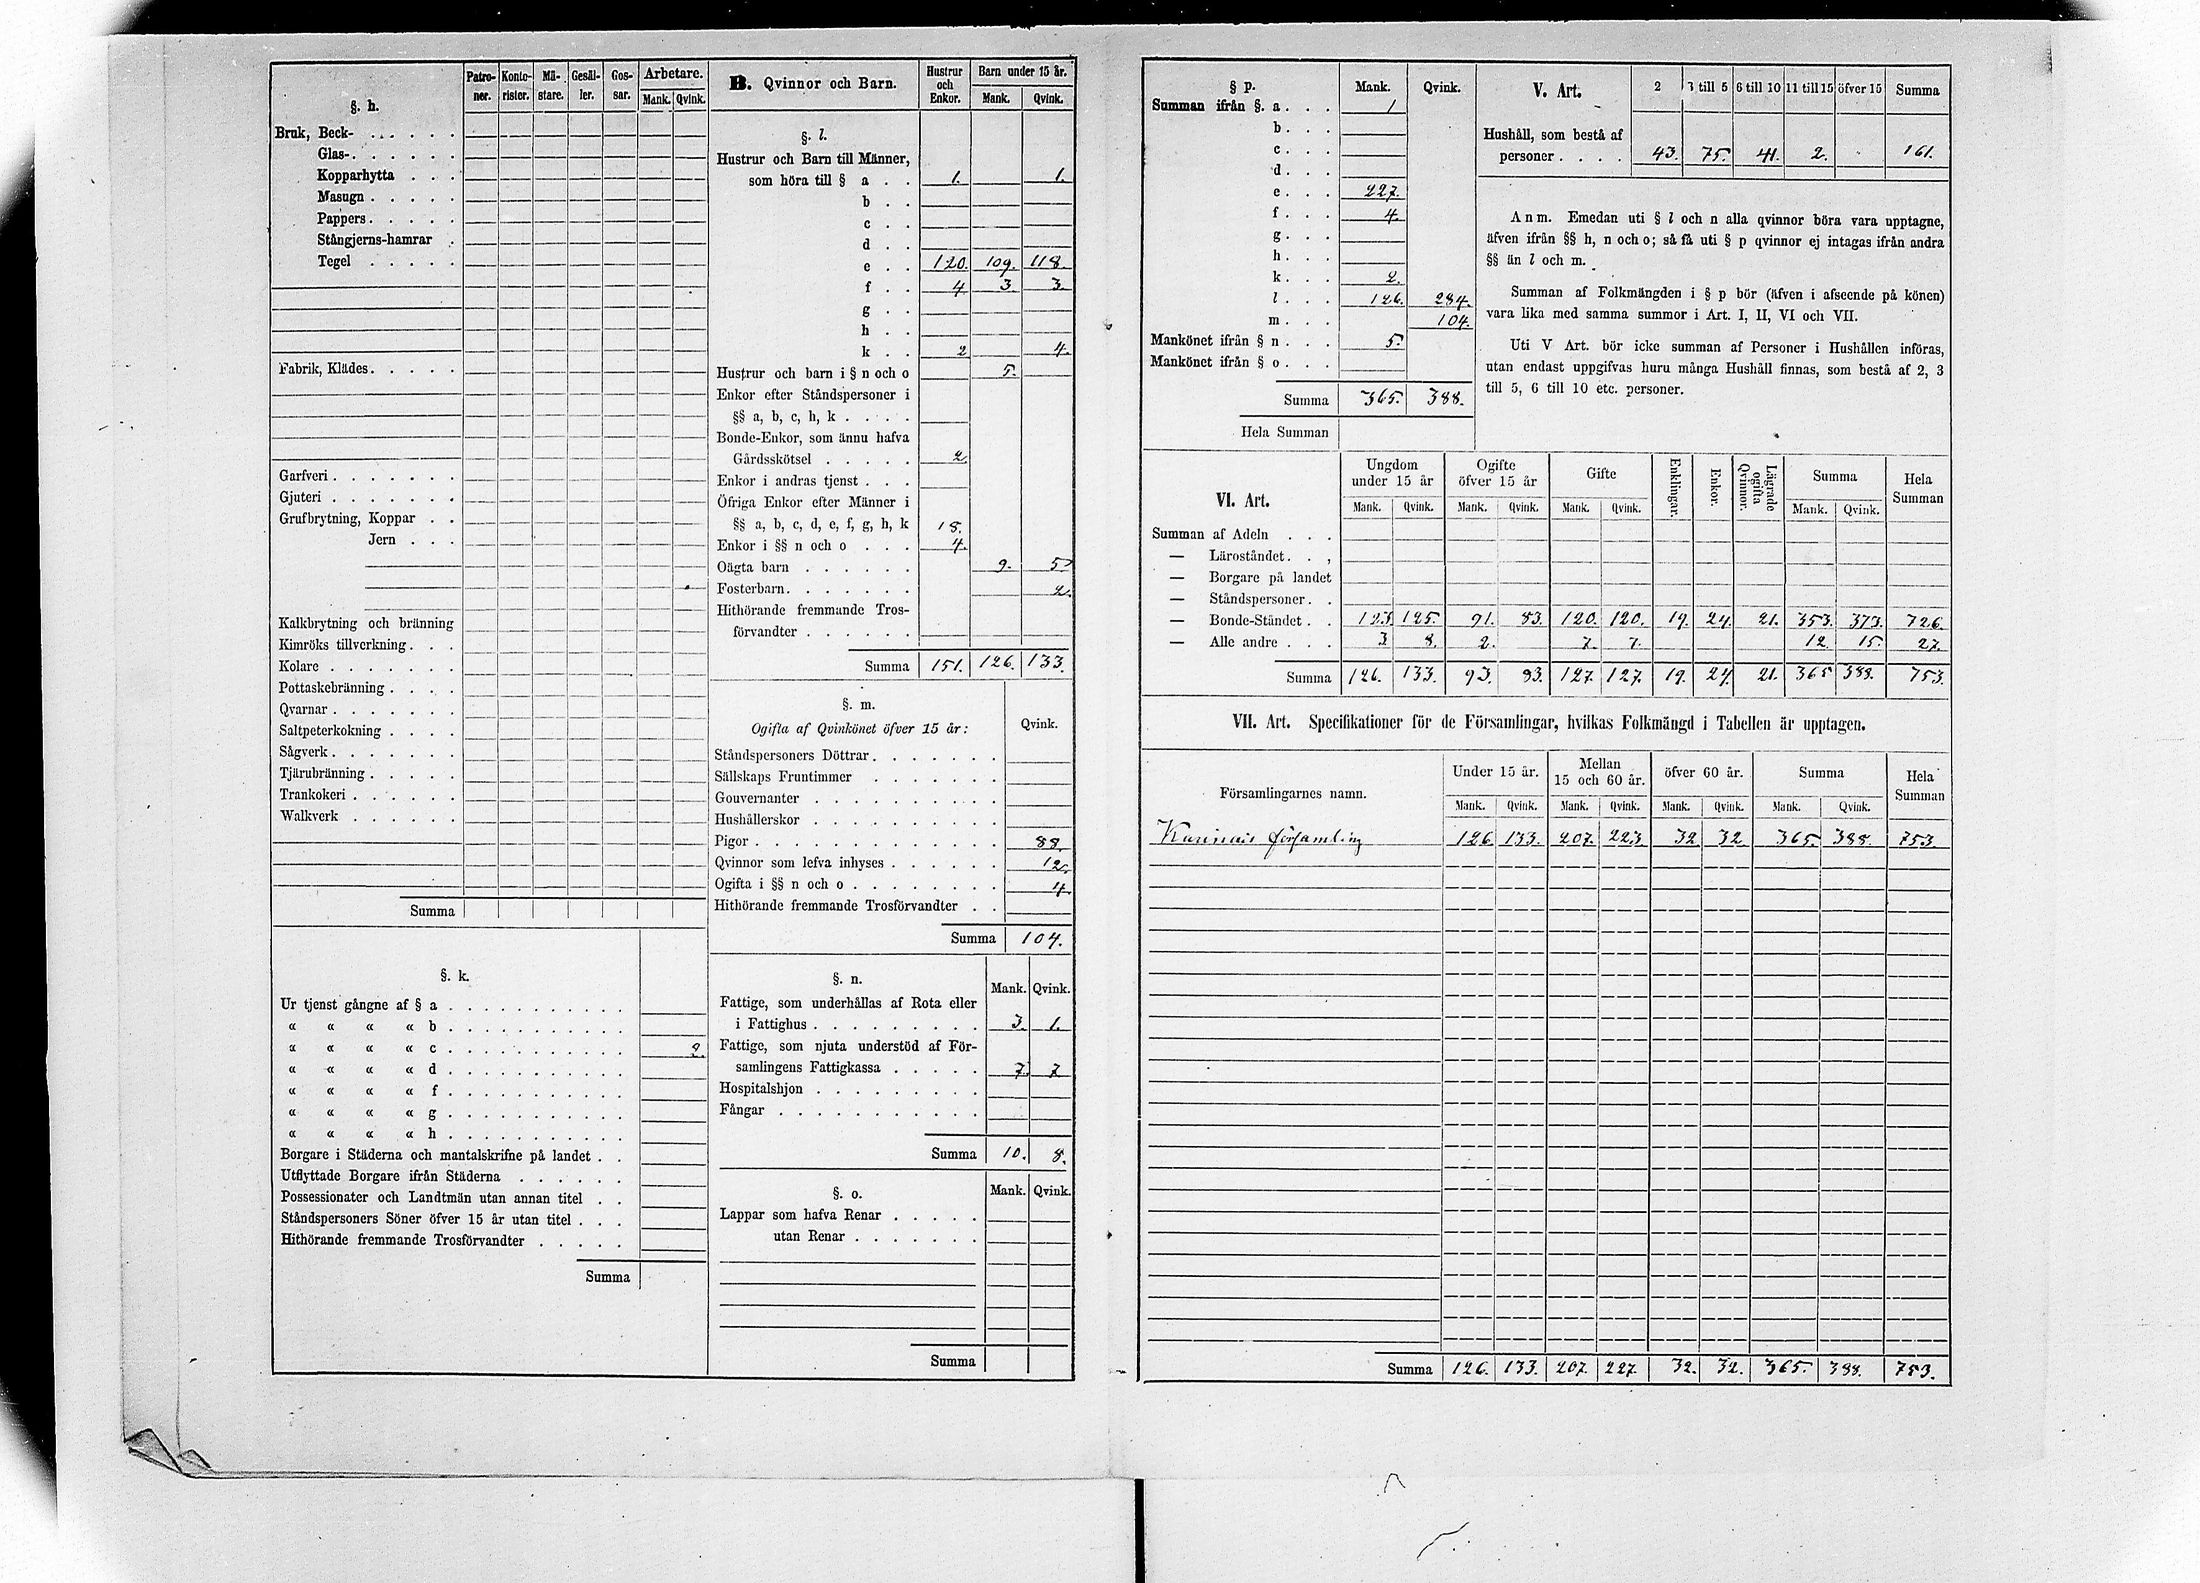 §. h. Patro-ner. Konto-rister. Mä-stare. Gesäl-ler. Gos-sar. Arbetare. Mank. Qvink.
Bruk, Beck- . . . . .
Glas- . . . . .
Kopparhytta . . .
Masugn . . . . .
Pappers . . . . .
Stångjerns-hamrar .
Tegel . . . . .
Fabrik, Klädes . . . .
Garfveri . . . . . . .
Gjuteri . . . . . . .
Grufbrytning, Koppar . .
Jern . . .
Kalkbrytning och bränning
Kimröks tillverkning . . .
Kolare . . . . . . .
Pottaskebränning . . . .
Qvarnar . . . . . . .
Saltpeterkokning . . . .
Sågverk . . . . . . .
Tjärubränning . . . . .
Trankokeri . . . . . .
Walkverk . . . . . .
Summa
§. k.
Ur tjenst gångne af § a . . . . . . . . . . .
« « « « b . . . . . . . . . . .
« « « « c . . . . . . . . . . . 2.
« « « « d . . . . . . . . . . .
« « « « f . . . . . . . . . . .
« « « « g . . . . . . . . . . .
« « « « h . . . . . . . . . . .
Borgare i Städerna och mantalskrifne på landet . .
Utflyttade Borgare ifrån Städerna . . . . . .
Possessionater och Landtmän utan annan titel . .
Ståndspersoners Söner öfver 15 år utan titel . . .
Hithörande fremmande Trosförvandter . . . . .
Summa
B. Qvinnor och Barn. Hustrur och Enkor. Barn under 15 år. Mank. Qvink.
§. l.
Hustrur och Barn till Männer,
som höra till § a . . 1. 1.
b . .
c . .
d . .
e . . 120. 109. 118.
f . . 4 3. 3.
g . .
h . .
k . . 2 4.
Hustrur och barn i § n och o 5.
Enkor efter Ståndspersoner i
§§ a, b, c, h, k . . . .
Bonde-Enkor, som ännu hafva
Gårdsskötsel . . . . . 2.
Enkor i andras tjenst . . .
Öfriga Enkor efter Männer i
§§ a, b, c, d, e, f, g, h, k 18.
Enkor i §§ n och o . . . 4.
Oägta barn . . . . . . 9. 5
Fosterbarn . . . . . . . 2.
Hithörande fremmande Tros-
förvandter . . . . . .
Summa 151. 126. 133.
§. m.
Ogifta af Qvinkönet öfver 15 år: Qvink.
Ståndspersoners Döttrar . . . . . . .
Sällskaps Fruntimmer . . . . . . .
Gouvernanter . . . . . . . . . .
Hushållerskor . . . . . . . . . .
Pigor . . . . . . . . . . . . . 88.
Qvinnor som lefva inhyses . . . . . . 12.
Ogifta i §§ n och o . . . . . . . . 4
Hithörande fremmande Trosförvandter . .
Summa 104.
§. n. Mank. Qvink.
Fattige, som underhållas af Rota eller
i Fattighus . . . . . . . . . 3. 1.
Fattige, som njuta understöd af För-
samlingens Fattigkassa . . . . . 7. 7
Hospitalshjon . . . . . . . . . .
Fångar . . . . . . . . . . . .
Summa 10. 8.
§. o. Mank. Qvink.
Lappar som hafva Renar . . . . .
utan Renar . . . . . . .
Summa
§ p. Mank. Qvink.
Summan ifrån §. a . . . 1
b . . .
c . . .
d . . .
e . . . 227.
f . . . 4.
g . . .
h . . .
k . . . 2.
l . . . 126. 284.
m . . . 104.
Mankönet ifrån § n . . . 5.
Mankönet ifrån § o . . .
Summa 365. 388.
Hela Summan
V. Art. 2 3 till 5 6 till 10 11 till 15 öfver 15 Summa
Hushåll, som bestå af
personer . . . . 43. 75. 41. 2. 161.
Anm. Emedan uti § l och n alla qvinnor böra vara upptagne,
äfven ifrån §§ h, n och o; så få uti § p qvinnor ej intagas ifrån andra
§§ än l och m.
Summan af Folkmängden i § p bör (äfven i afseende på könen)
vara lika med samma summor i Art. I, II, VI och VII.
Uti V Art. bör icke summan af Personer i Hushållen införas,
utan endast uppgifvas huru många Hushåll finnas, som bestå af 2, 3
till 5, 6 till 10 etc. personer.
VI. Art. Ungdom under 15 år Ogifte öfver 15 år Gifte Enklingar. Enkor. Lägrade ogifta Qvinnor. Summa Hela Summan
Mank. Qvink. Mank. Qvink. Mank. Qvink. Mank. Qvink.
Summan af Adeln . . .
— Läroståndet . . ,
— Borgare på landet
— Ståndspersoner . .
— Bonde-Ståndet . . 123. 125. 91. 83. 120. 120. 19. 24. 21. 353. 373. 726.
— Alle andre . . . 3 8. 2. 7. 7. 12. 15. 27.
Summa 126. 133. 93. 83. 127. 127. 19. 24. 21. 365 388. 753.
VII. Art. Specifikationer för de Församlingar, hvilkas Folkmängd i Tabellen är upptagen.
Församlingarnes namn. Under 15 år. Mellan 15 och 60 år. öfver 60 år. Summa Hela Summan
Mank. Qvink. Mank. Qvink. Mank. Qvink. Mank. Qvink.
Karinais församling 126. 133. 207. 223. 32. 32 365. 388. 753.
Summa 126. 133. 207. 227. 32. 32. 365. 388. 753.